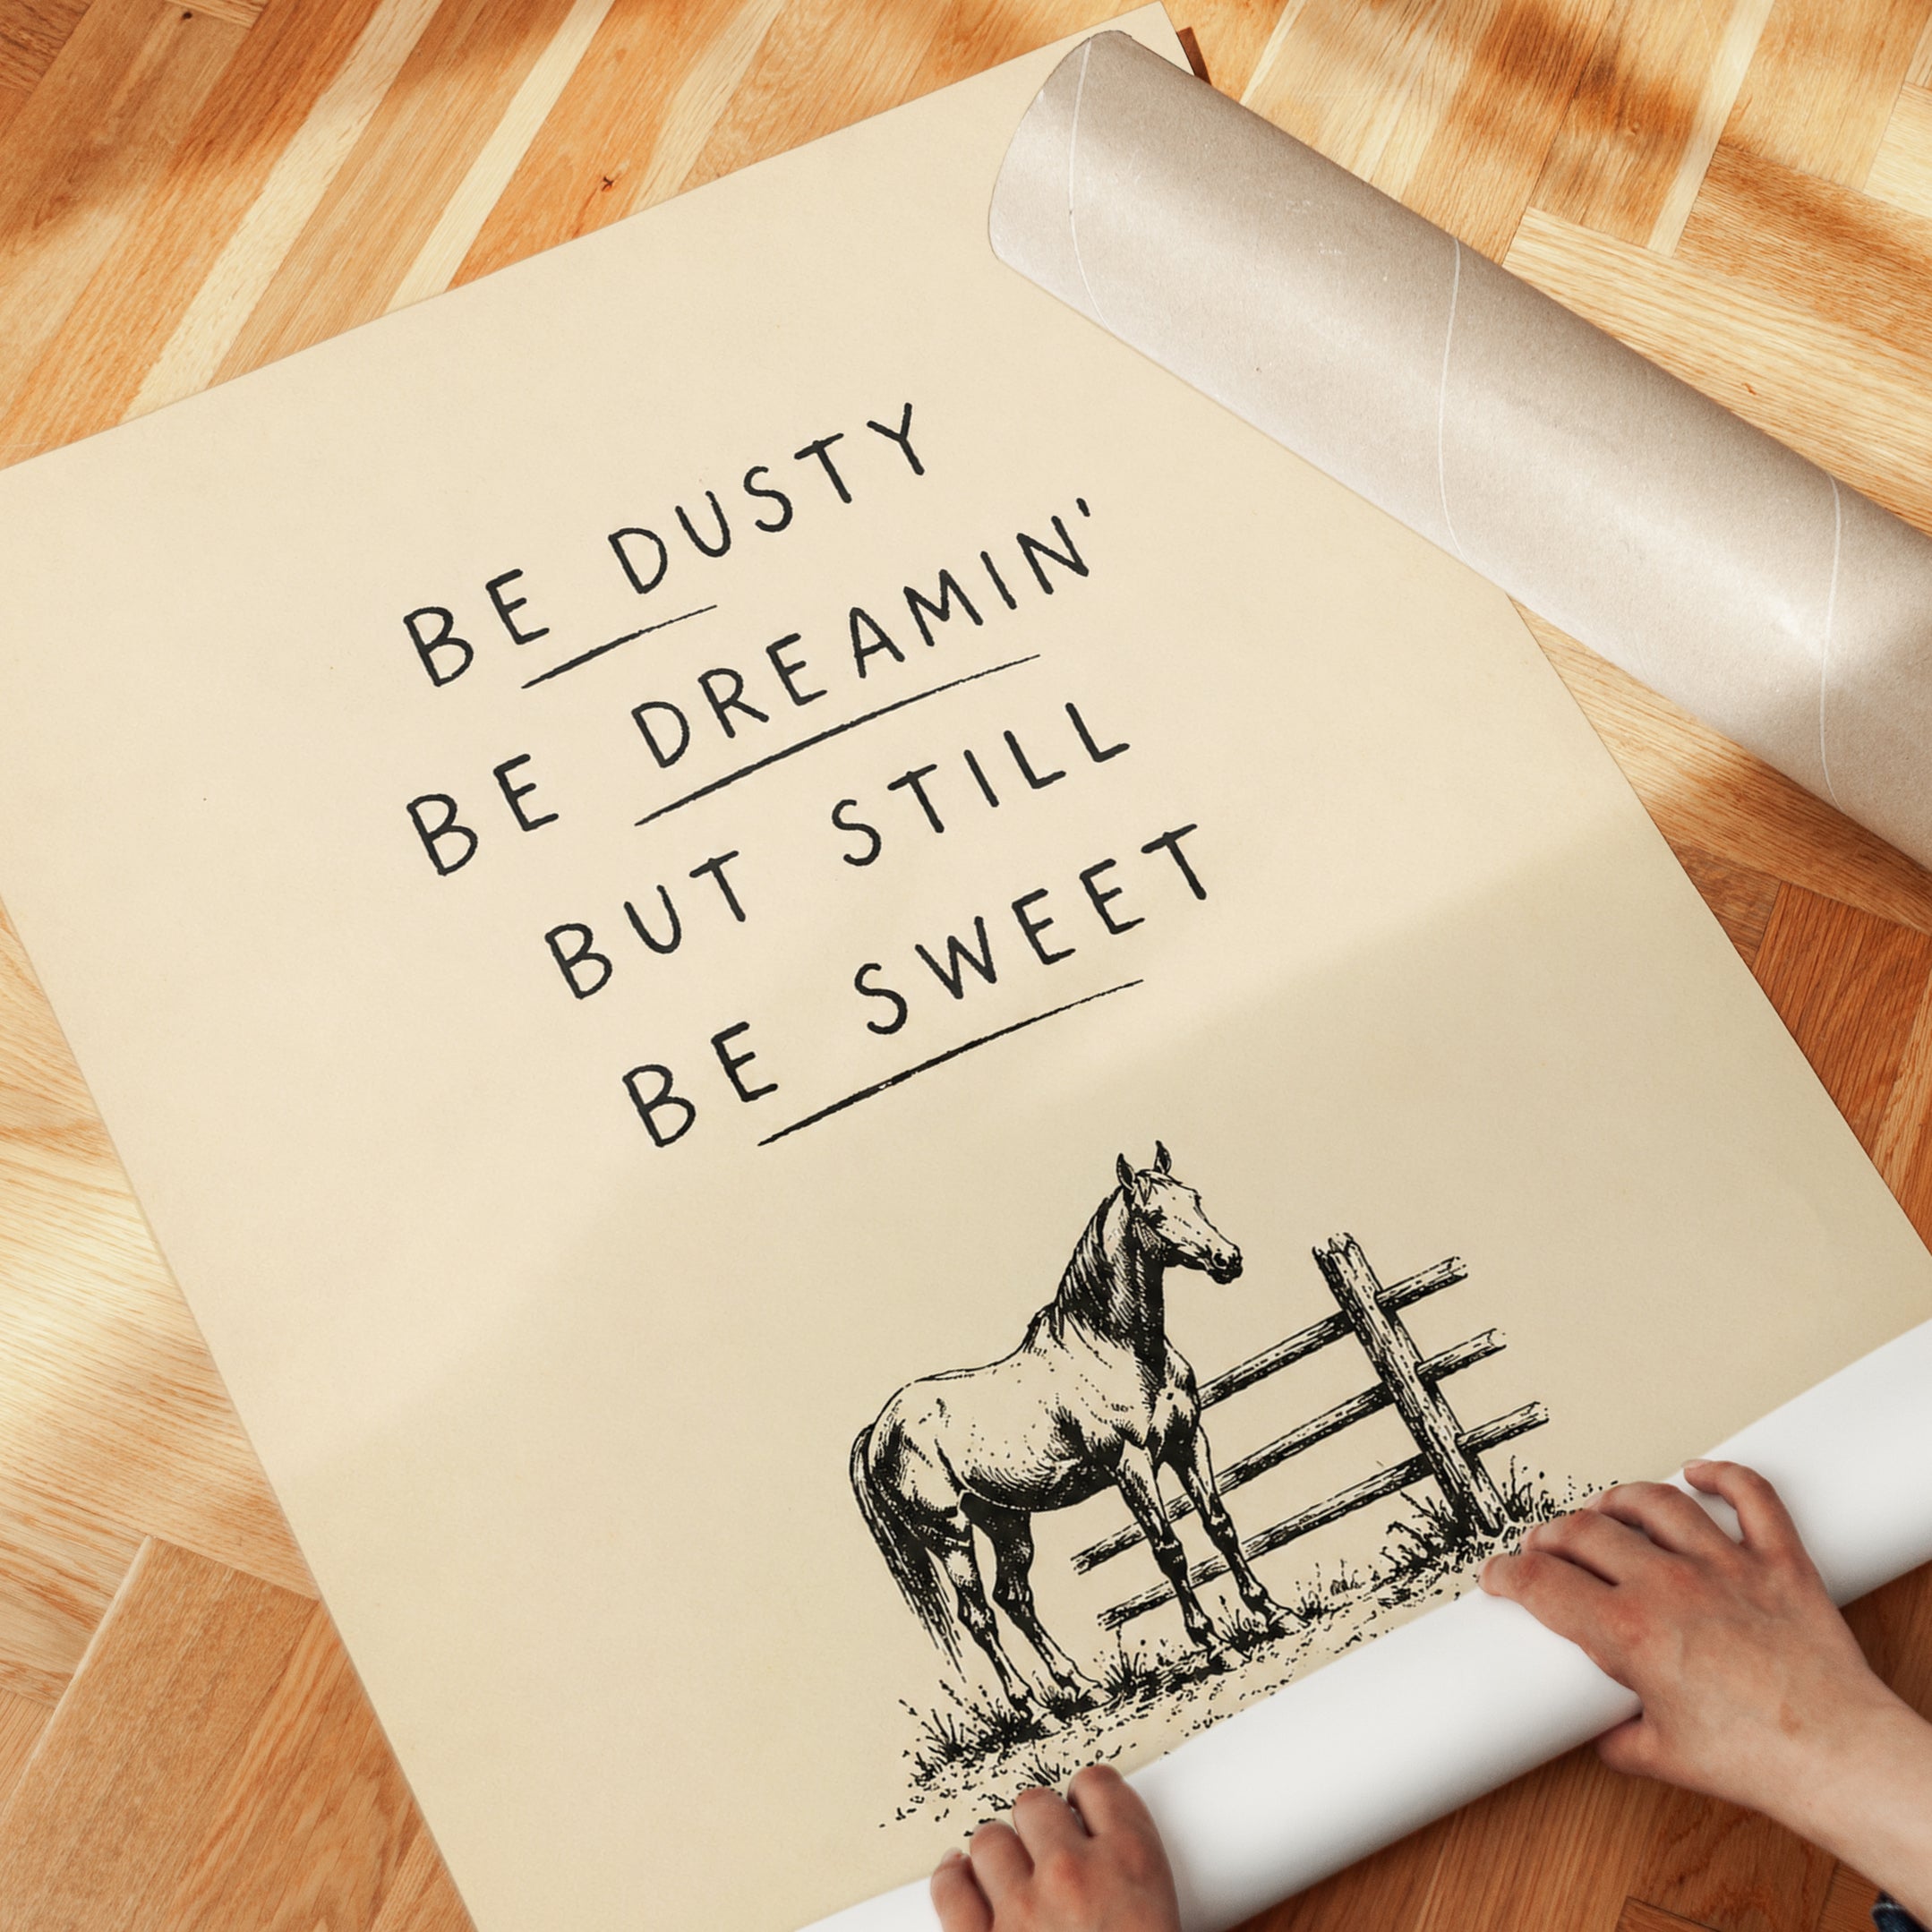 BE DUSTY
BE DREAMIN'
BUT STILL
BE SWEET